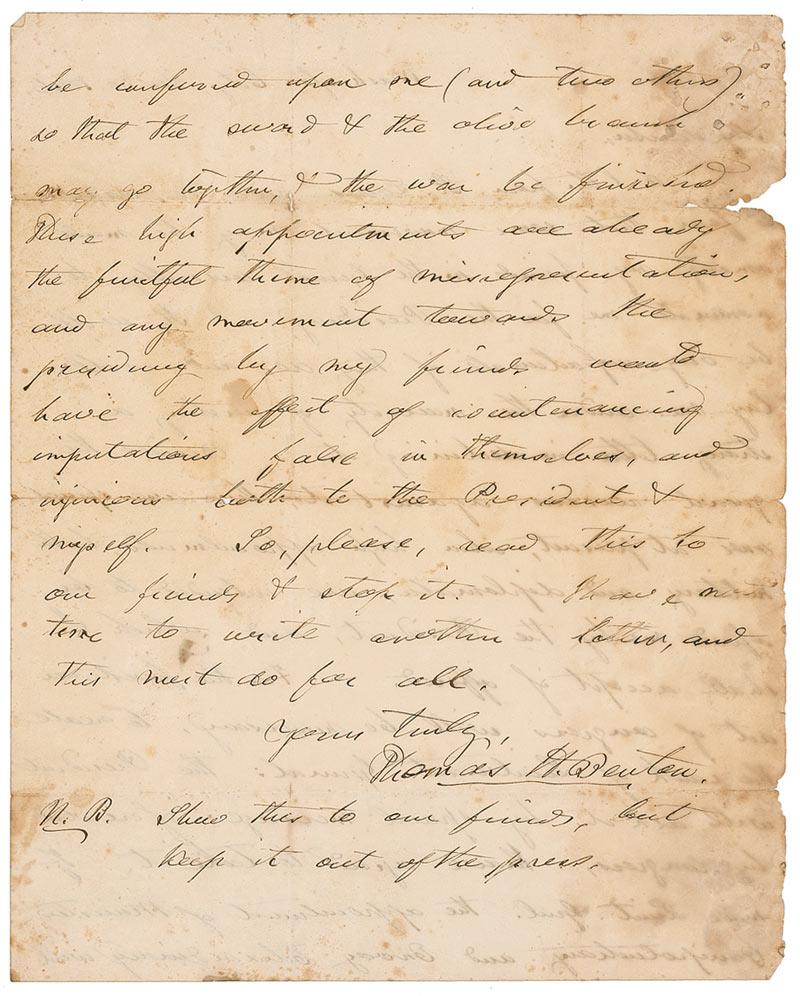 be conferred upon me (and two others)
so that the sword & the olive branch
may go together, & the war be finished.
These high appointments are already
the fruitful theme of misrepresentation,
and any movement towards the
presidency by my friends would
have the effect of countenancing
imputations false in themselves, and
injurious both to the President &
myself. So, please, read this to
our friends & stop it. I have not
time to write another letter, and
this must do for all.
Yours truly,
Thomas H. Benton.
N. B. Show this to our friends, but
keep it out of the press.